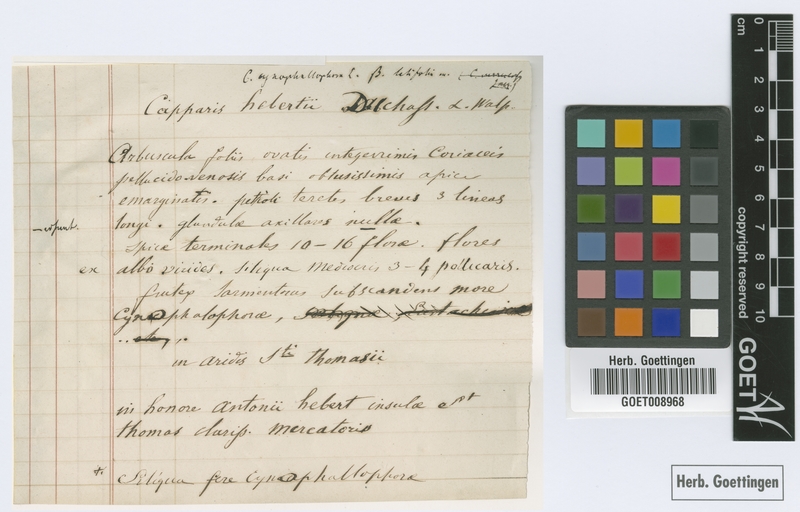 C. cynophallophora L. β. latifolia
Capparis hebertii Duchass. & Walp.
Arbuscula foliis ovatis integerrimis Coriaceis
pellucido-venosis basi obtusissimis apice
emarginatis. petioli teretes breves 3 lineas
longi. glandulæ axillares nullæ.
Spicæ terminales 10-16 floræ. flores
ex albo virides. Siliqua mediocris 3-4 pollicaris.
frutex Sarmentosus Subscandens more
Cynophalophoræ,
in aridis Sti thomasii
in honore Antonii hebert insulæ St
thomas clariss. mercatoris
+ Siliqua fere Cynophallophoræ
cm 0 1 2 3 4 5 6 7 8 9 10
copyright reserved
GOET
Herb. Goettingen
GOET008968
Herb. Goettingen